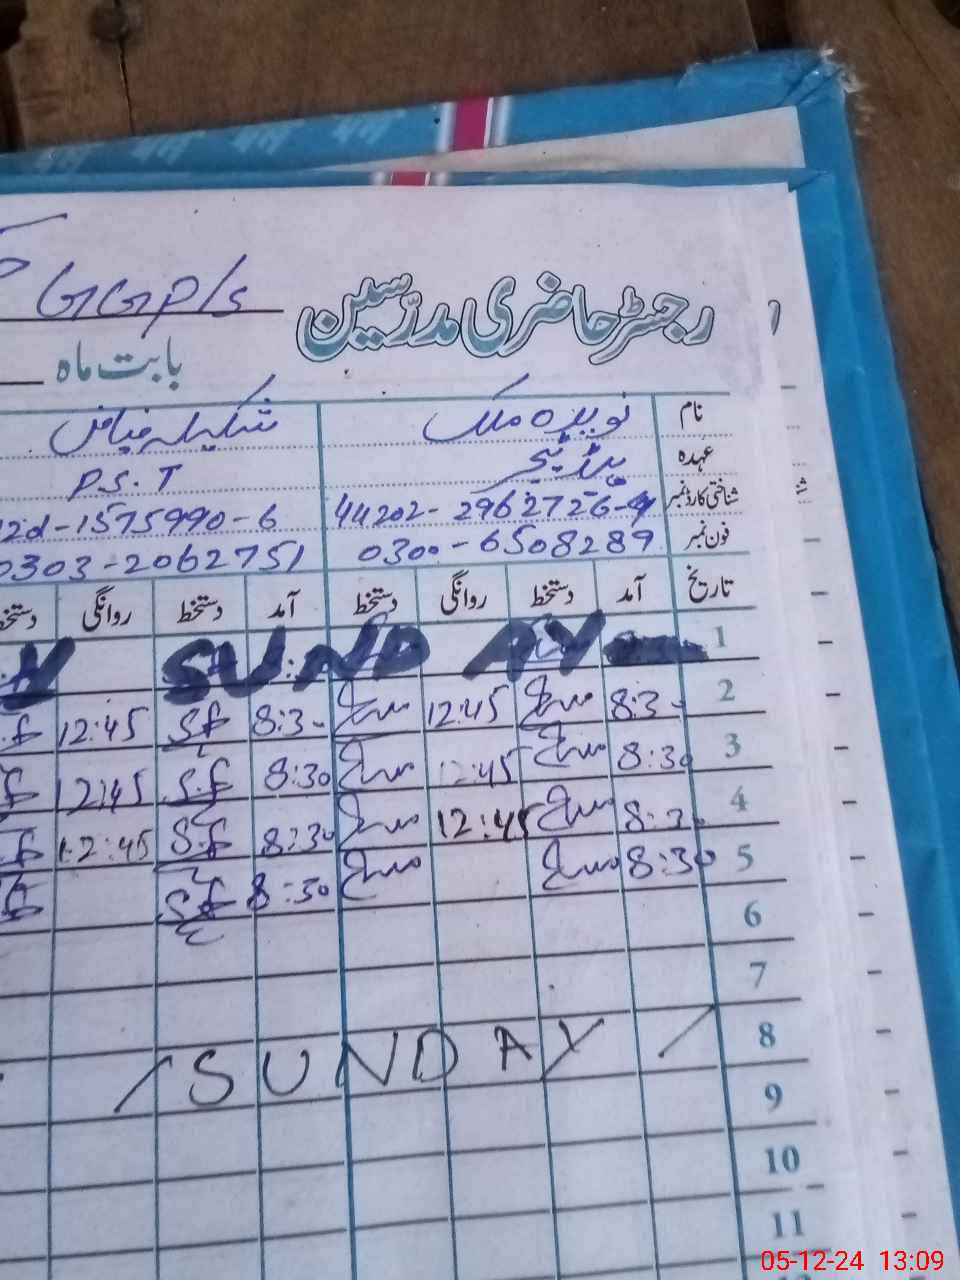 GGPS
رجسٹر حاضری مدرسین
بابت ماہ
نام نوید ملک شکیلہ فیاض
عہدہ P.S.T
شناختی کارڈ نمبر 44202-2962726- -1575990-6
فون نمبر 0300-6508289 0303-2062751
تاریخ آمد دستخط روانگی دستخط آمد دستخط روانگی دستخط
1 SUNDAY
2 8:30 12:45 8:30 S.f 12:45 S.f
3 8:30 12:45 8:30 S.f 12:45
4 8:30 12:45 8:30 S.f 12:45
5 8:30 8:30 S.f
6
7
8 / SUNDAY /
9
10
11
05-12-24 13:09